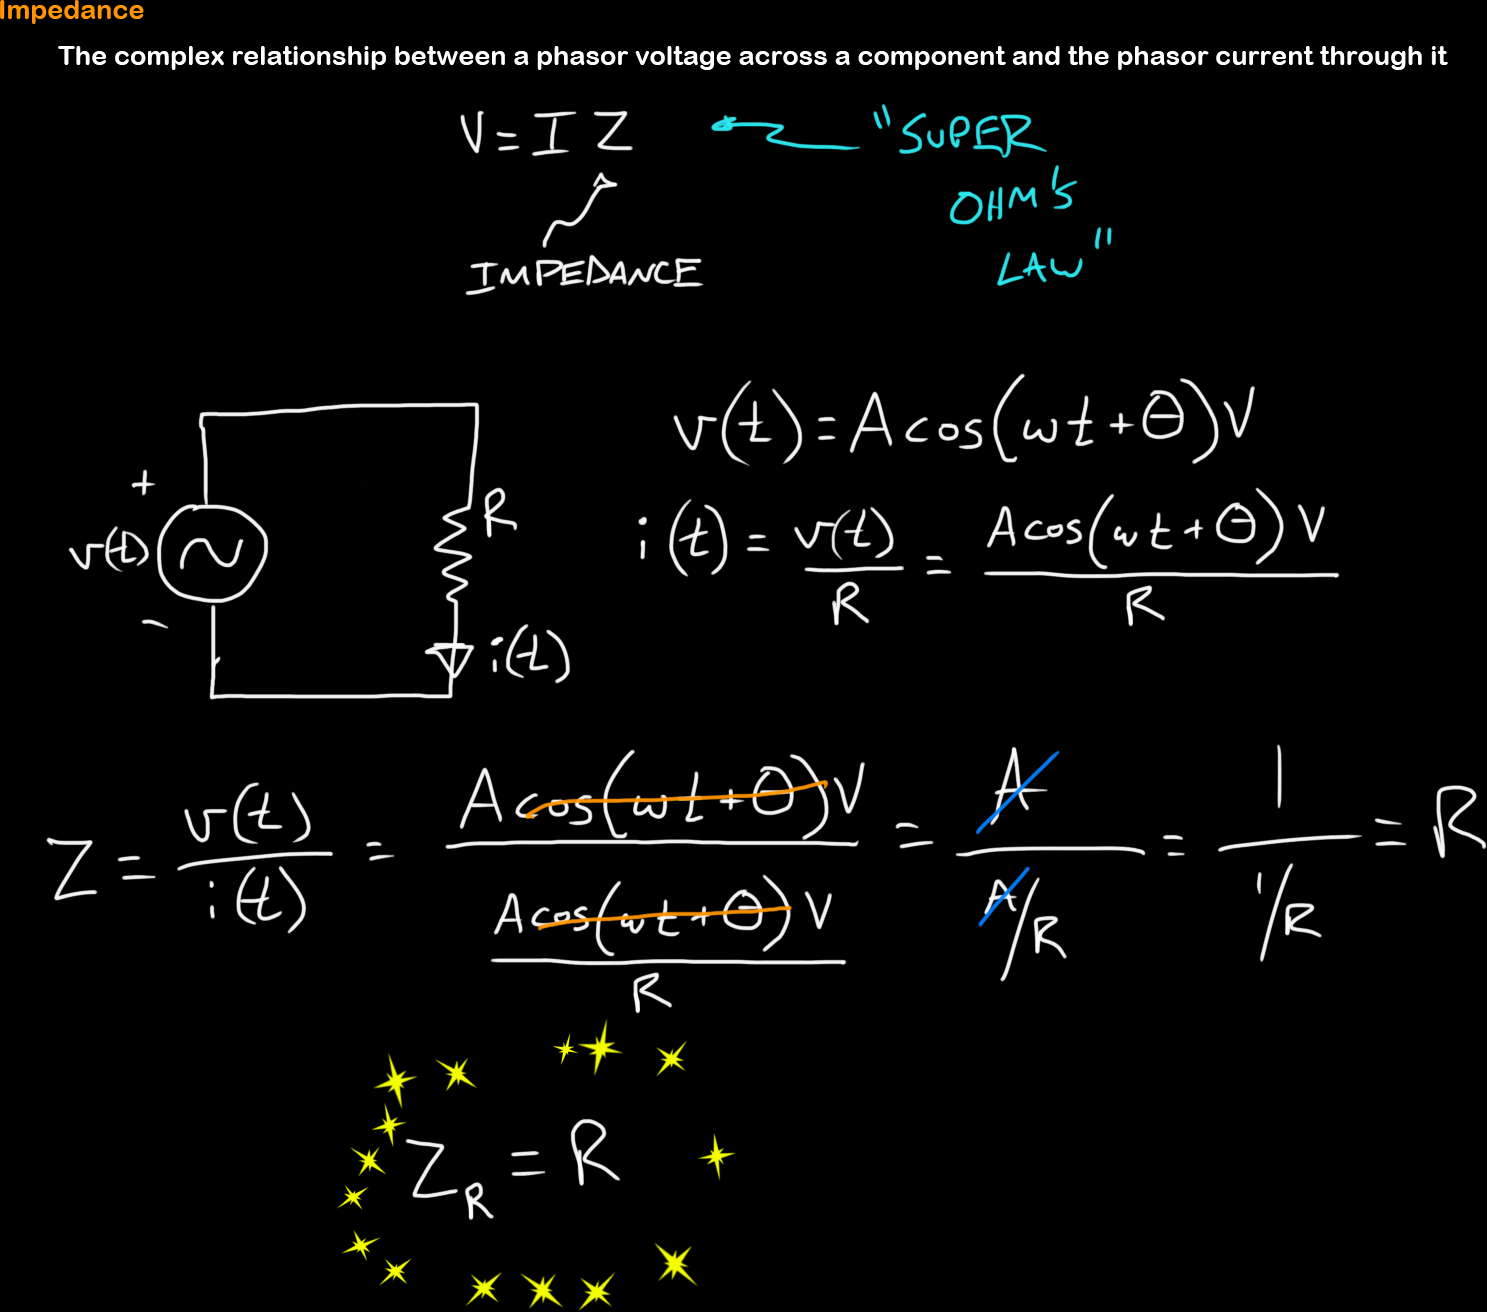 Impedance
The complex relationship between a phasor voltage across a component and the phasor current through it
V = I Z
"SUPER
OHM'S
LAW"
IMPEDANCE
v(t) = A cos(ωt + Θ) V
i(t) = v(t)/R = A cos(ωt + Θ) V / R
+
v(t)
−
R
i(t)
Z = v(t)/i(t) = A cos(ωt + Θ) V / (A cos(ωt + Θ) V / R) = A / (A/R) = 1 / (1/R) = R
Z_R = R